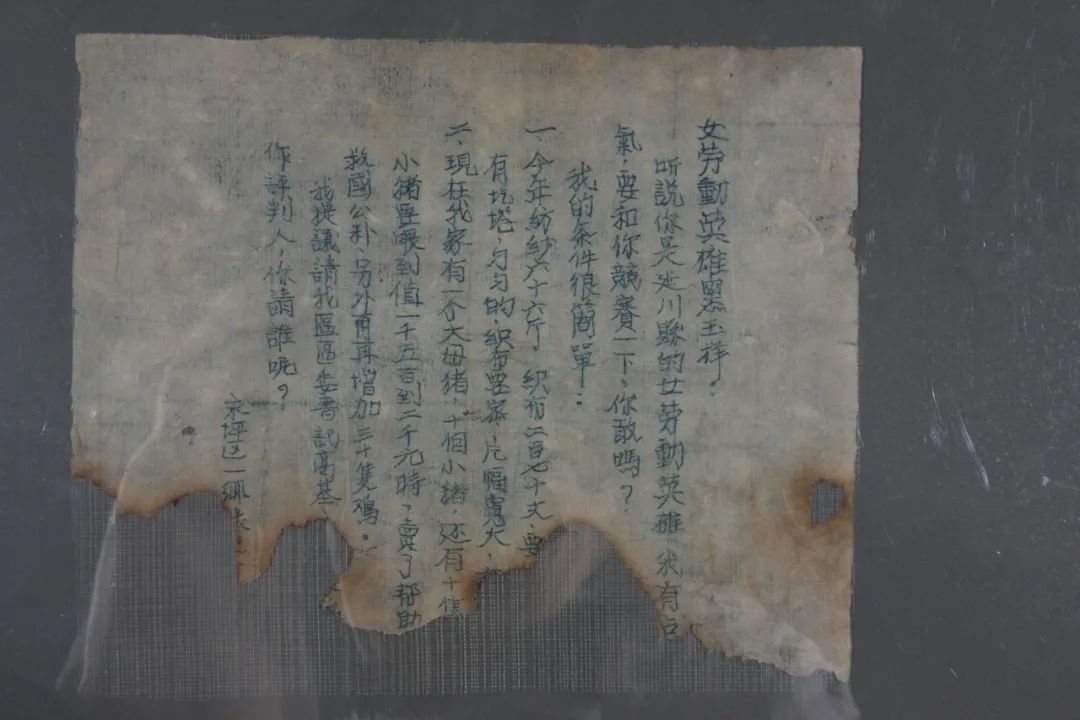 女劳動英雄黑玉祥：
听說你是延川縣的女劳動英雄，我有
氣，要和你競賽一下，你敢嗎？
我的条件很簡單：
一、今年紡紗六十六斤，织布二百七十丈，要
有圪塔，匀匀的，织布要密，片幅寬大，
二、現在我家有一个大母猪，十個小猪，还有十隻
小猪要喂到值一千五百到二千元時，賣了帮助
救國公粮，另外再增加三十隻鸡。
我提議請我區區委書記馬基
作評判人，你請誰呢？
永坪区一鄉